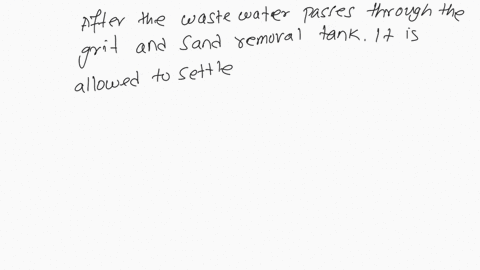 After the waste water passes through the
grit and sand removal tank. It is
allowed to settle